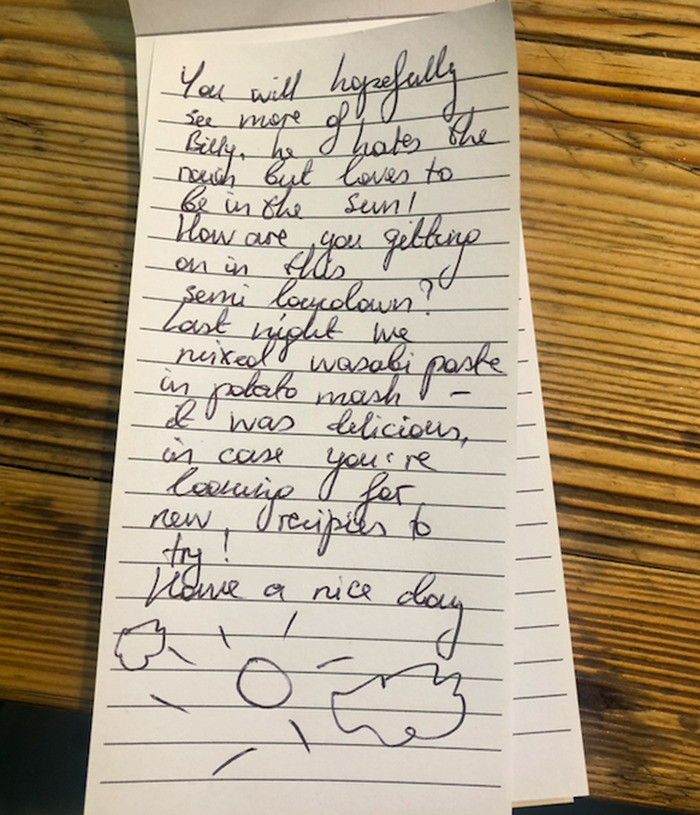 You will hopefully
see more of
Billy, he hates the
rough but loves to
be in the sun!
How are you getting
on in this
semi lockdown?
Last night we
mixed wasabi paste
in potato mash –
it was delicious,
in case you're
looking for
new recipies to
try!
Have a nice day